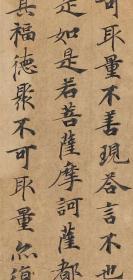 可取量不善現答言不也
是如是若菩薩摩訶薩都
其福德聚不可取量佘復